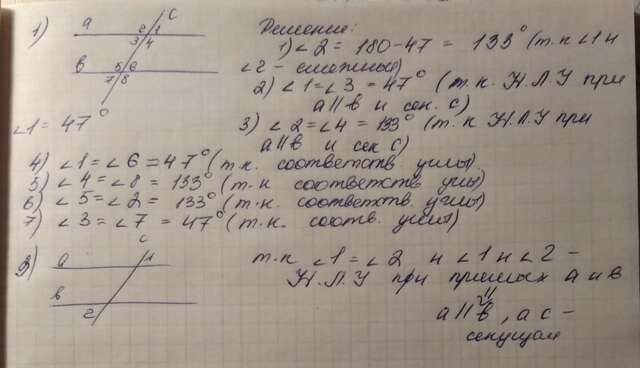 1) a c Решение:
2 1
3 4
1) ∠2 = 180 - 47 = 133° (т.к ∠1 и
в 5 6
7 8
∠2 - смежные)
2) ∠1 = ∠3 = 47° (т.к. Н.Л.У при
a || в и сек. с)
∠1 = 47°
3) ∠2 = ∠4 = 133° (т.к Н.Л.У при
a || в и сек с)
4) ∠1 = ∠6 = 47° (т.к. соответств. углы)
5) ∠4 = ∠8 = 133° (т.к соответств углы)
6) ∠5 = ∠2 = 133° (т.к. соответств. углы)
7) ∠3 = ∠7 = 47° (т.к. соотв. углы)
2) a c 1
в 2
т.к ∠1 = ∠2 и ∠1 и ∠2 -
Н.Л.У при прямых а и в
⇓
a || в, а с -
секущая